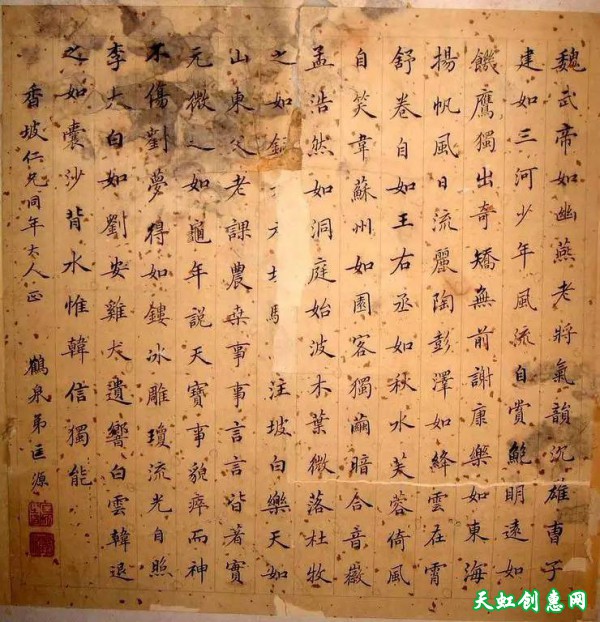 魏武帝如幽燕老將氣韻沉雄曹子
建如三河少年風流自賞鮑明遠如
饑鷹獨出奇矯無前謝康樂如東海
揚帆風日流麗陶彭澤如絳雲在霄
舒卷自如王右丞如秋水芙蓉倚風
自笑韋蘇州如園客獨繭暗合音徽
孟浩然如洞庭始波木葉微落杜牧
之如注坡白樂天如
山東父老課農桑事事言言皆著實
元微之如龜年說天寶事貌瘁而神
不傷劉夢得如鏤冰雕瓊流光自照
李太白如劉安雞犬遺響白雲韓退
之如囊沙背水惟韓信獨能
香坡仁兄同年大人正 鶴泉弟匡源
天虹创惠网